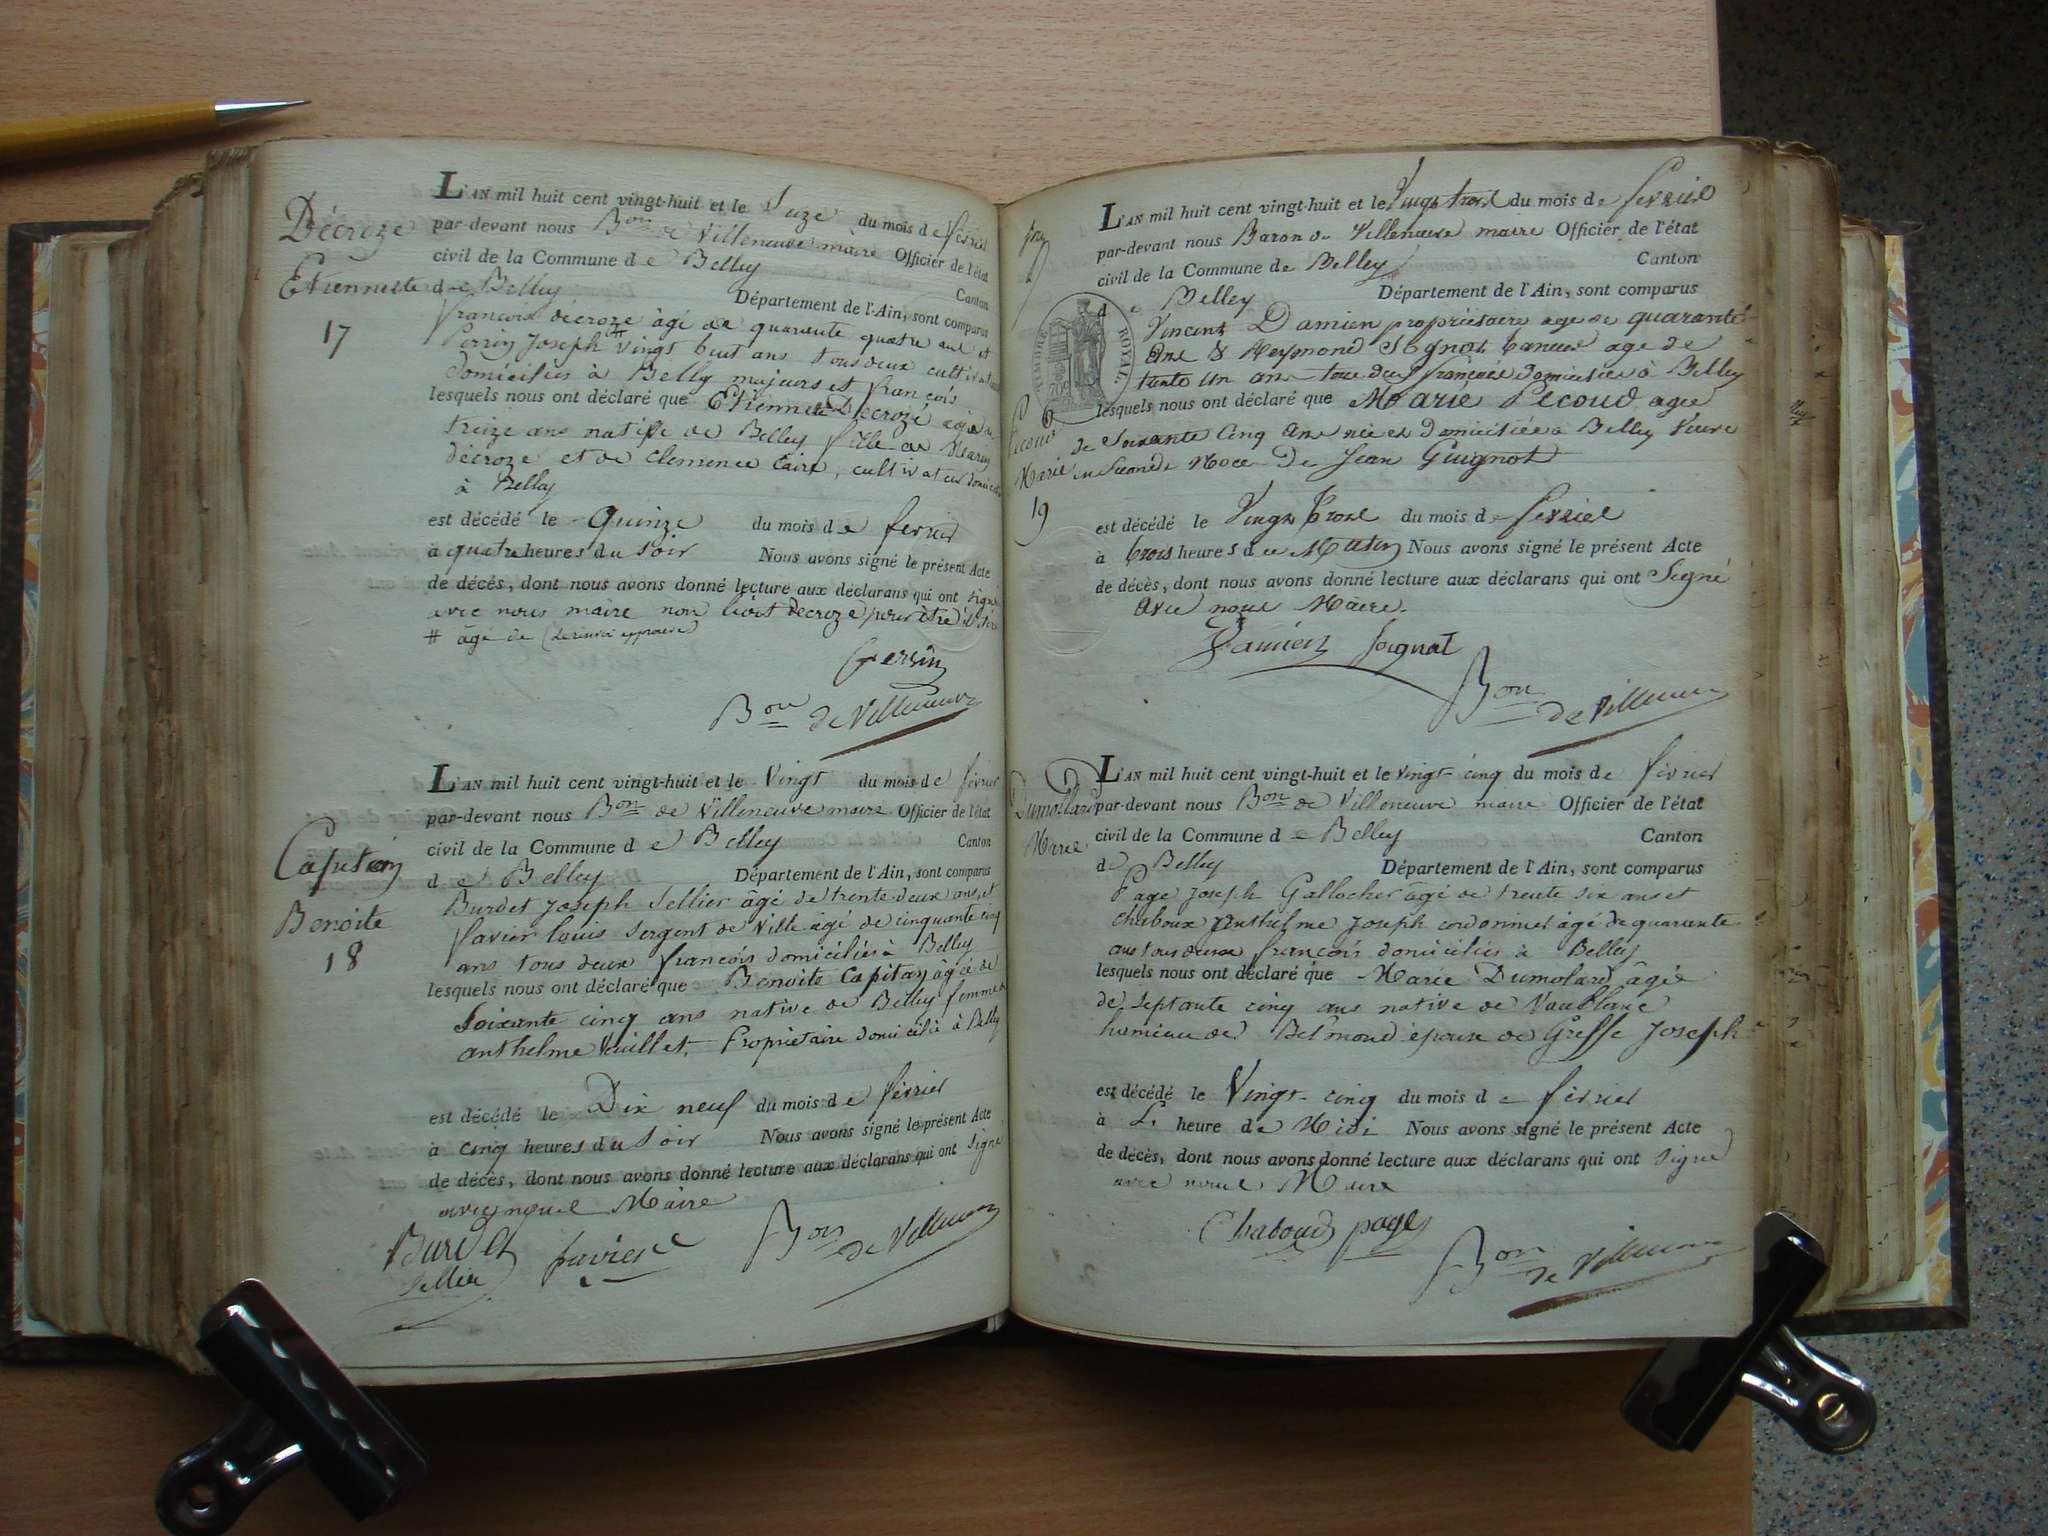 Décroze
Etiennette
17
L'AN mil huit cent vingt-huit et le Seize du mois de fevrier
par-devant nous Bon de Villeneuve maire Officier de l'état
civil de la Commune de Belley Canton
de Belley Département de l'Ain, sont comparus
francois décroze âgé de quarante quatre ans et
Perrin Joseph # vingt huit ans tous deux cultivateurs
domiciliés à Belley majeurs et françois
lesquels nous ont déclaré que Etiennette Décroze âgée de
treize ans native de Belley fille de
décroze et de clemence Caire, cultivateur domicilié
à Belley
est décédé le quinze du mois de fevrier
à quatre heures du soir Nous avons signé le présent Acte
de décès, dont nous avons donné lecture aux déclarans qui ont signé
avec nous maire non ledit décroze pour être illitéré
# âgé de (le renvoi approuvé)
Perrin
Bon de Villeneuve
Capitan
Benoite
18
L'AN mil huit cent vingt-huit et le Vingt du mois de février
par-devant nous Bon de Villeneuve maire Officier de l'état
civil de la Commune de Belley Canton
de Belley Département de l'Ain, sont comparus
Burdet Joseph Sellier âgé de trente deux ans, et
favier louis sergent de Ville âgé de cinquante cinq
ans tous deux francois domiciliés à Belley
lesquels nous ont déclaré que Benoite Capitan âgée de
Soixante cinq ans native de Belley femme
anthelme Vuillet, Propriétaire domicilié à Belley
est décédé le Dix neuf du mois de février
à cinq heures du soir Nous avons signé le présent Acte
de décès, dont nous avons donné lecture aux déclarans qui ont signé
avec nous Maire
Burdet
Sellier
favier
Bon de Villeneuve
TIMBRE ROYAL
Pecoud
Marie
19
L'AN mil huit cent vingt-huit et le Vingt trois du mois de fevrier
par-devant nous Baron de Villeneuve maire Officier de l'état
civil de la Commune de Belley Canton
de Belley Département de l'Ain, sont comparus
Vincent Damien propriétaire age de quarante
ans & Reymond Sognat taneur age de
trente un ans tous deux français domiciliés à Belley
lesquels nous ont déclaré que Marie Pecoud agée
de Soixante Cinq ans née et domiciliée a Belley Veuve
en Seconde Noce De Jean Guignot
est décédé le Vingt trois du mois de fevrier
à trois heures du Matin Nous avons signé le présent Acte
de décès, dont nous avons donné lecture aux déclarans qui ont Signé
avec nous Maire.
Damien Sognat
Bon de Villeneuve
Dumollard
Marie
L'AN mil huit cent vingt-huit et le vingt-cinq du mois de février
par-devant nous Bon de Villeneuve maire Officier de l'état
civil de la Commune de Belley Canton
de Belley Département de l'Ain, sont comparus
Page Joseph Gallocher âgé de trente six ans et
Chaboux Anthelme Joseph cordonnier âgé de quarante
ans tous deux francois domiciliés à Belley
lesquels nous ont déclaré que Marie Dumolard âgée
de septante cinq ans native de
hameau de Belmond épouse de Greffe Joseph
est décédé le Vingt-cinq du mois de février
à L' heure de Midi Nous avons signé le présent Acte
de décès, dont nous avons donné lecture aux déclarans qui ont signé
avec nous Maire
Chaboud page
Bon de Villeneuve